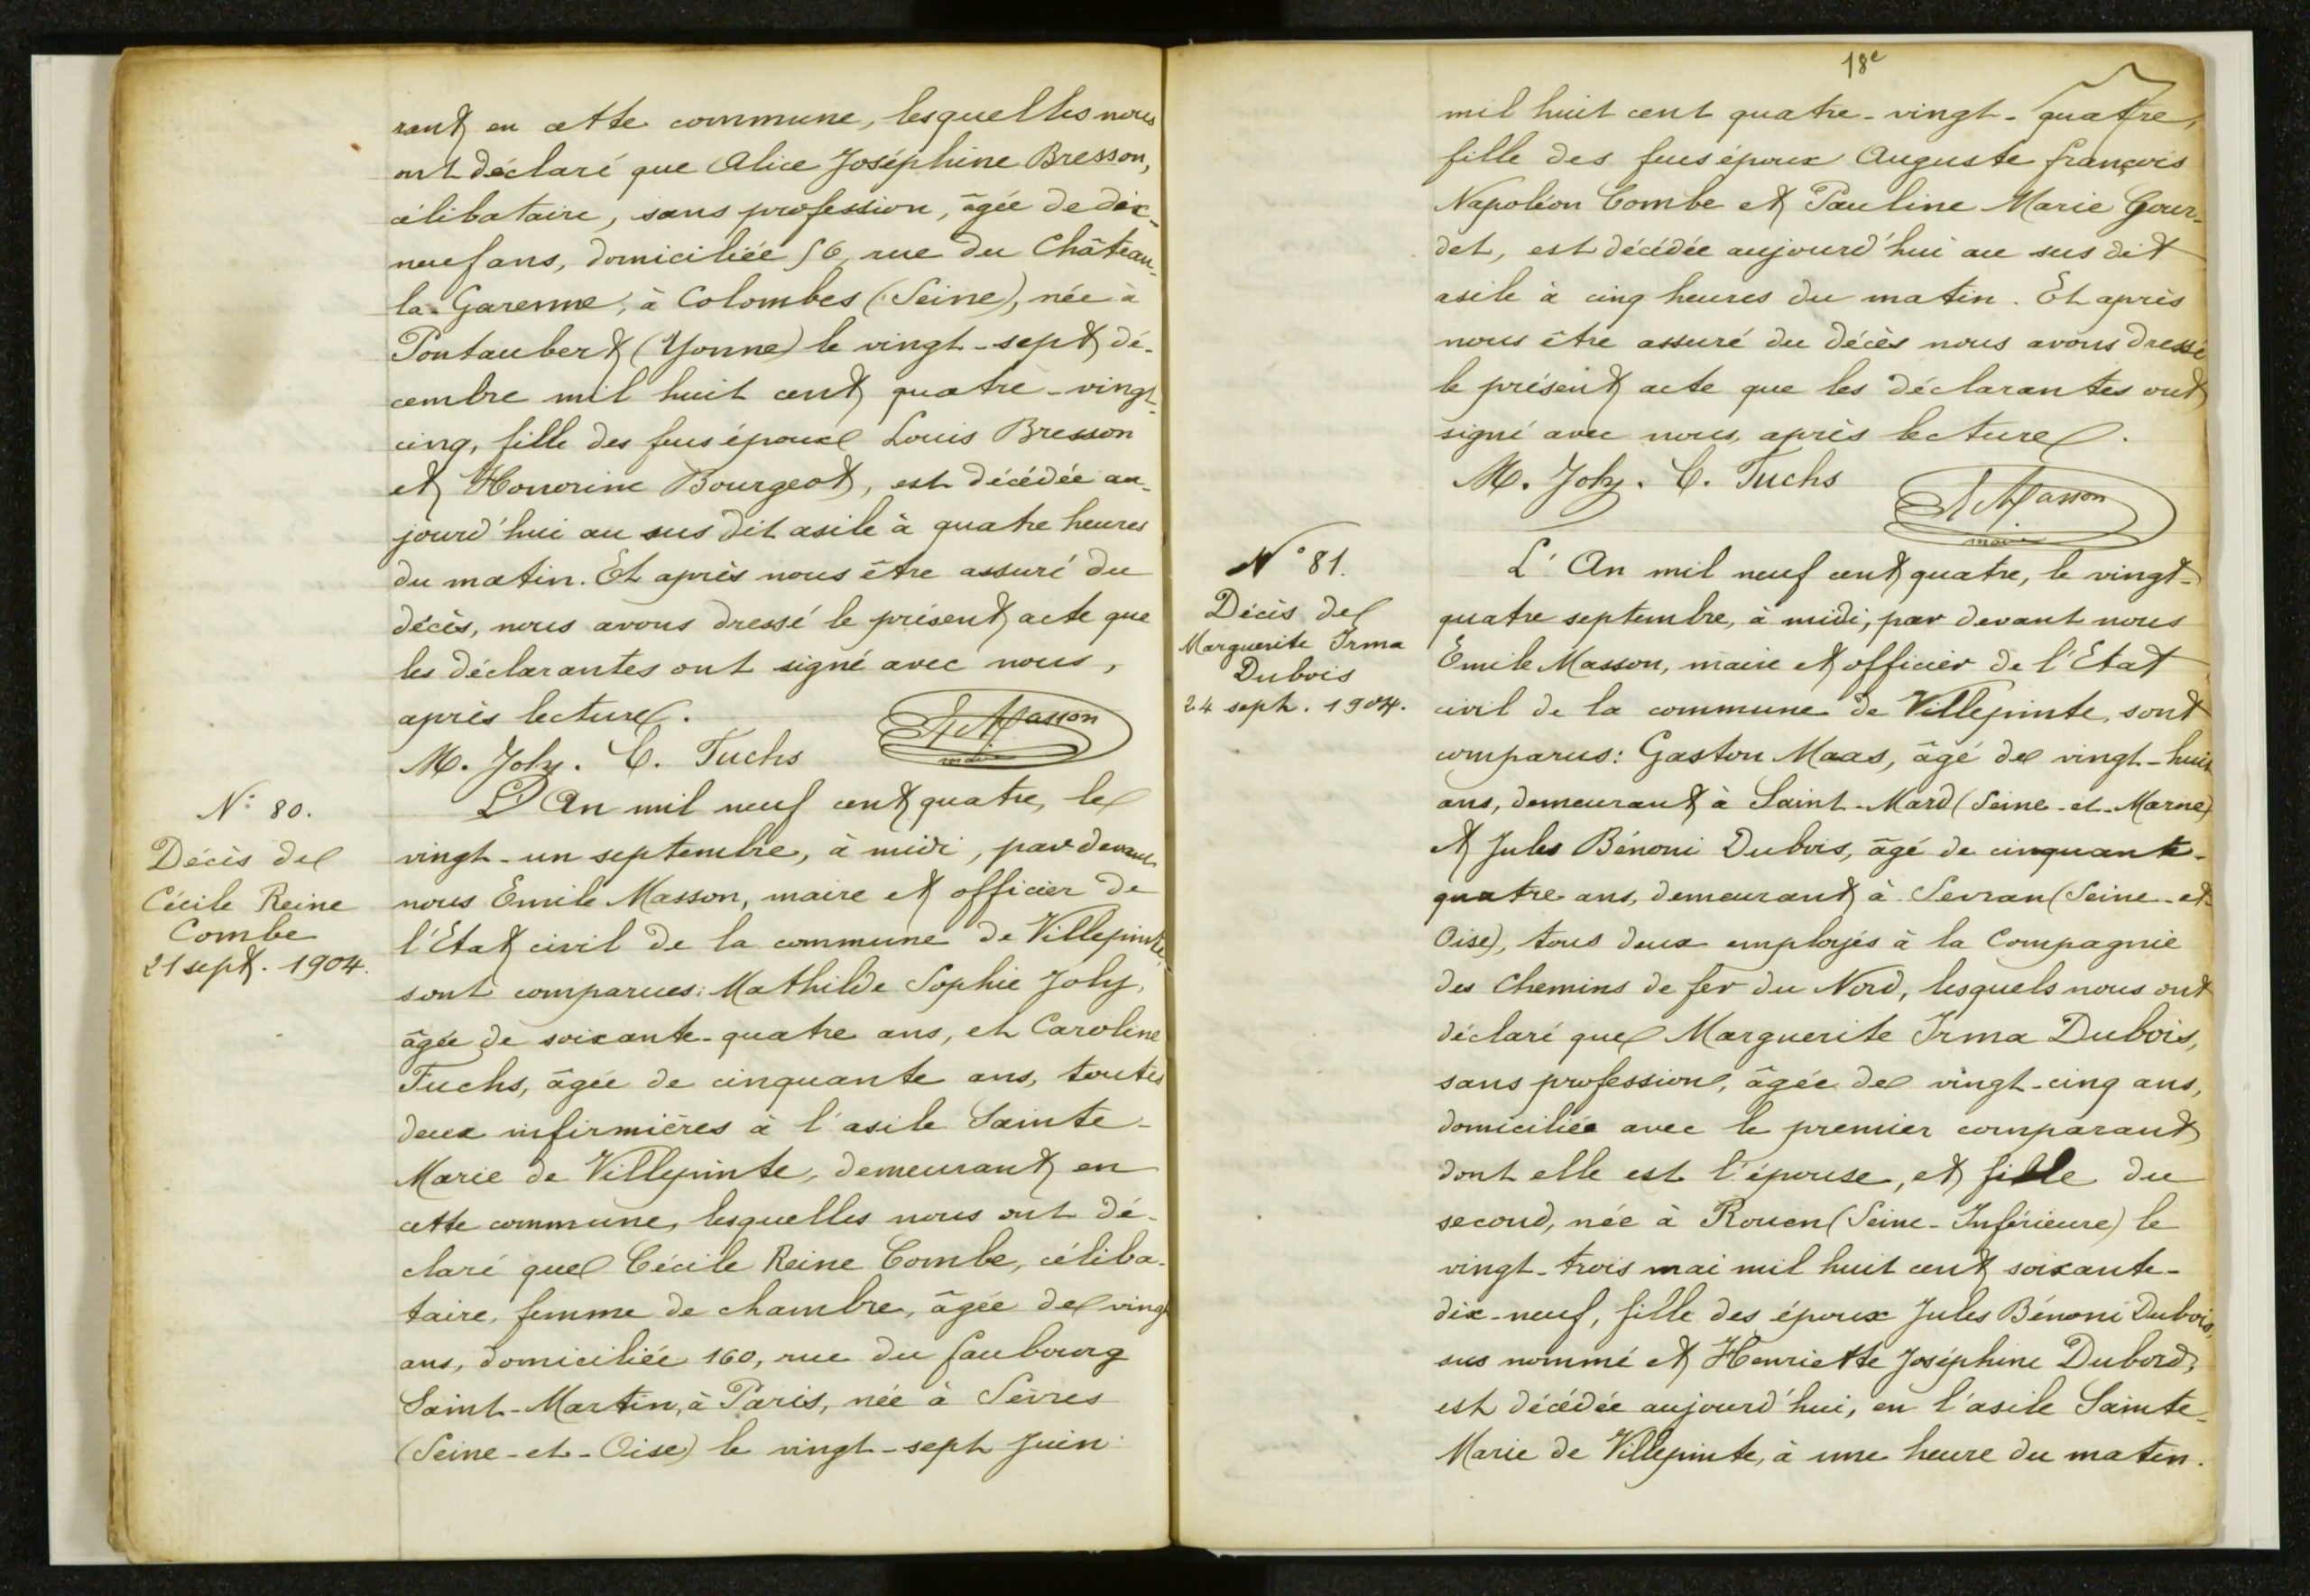 rant en cette commune, lesquelles nous
ont déclaré que Alice Joséphine Bresson,
célibataire, sans profession, âgée de dix-
neuf ans, domiciliée 56, rue du Château-
la-Garenne, à Colombes (Seine), née à
Pontaubert (Yonne) le vingt-sept dé-
cembre mil huit cent quatre-vingt-
cinq, fille des feus époux Louis Bresson
et Honorine Bourgeot, est décédée au-
jourd'hui au sus dit asile à quatre heures
du matin. Et après nous être assuré du
décès, nous avons dressé le présent acte que
les déclarantes ont signé avec nous,
après lecture.
M. Joly. C. Fuchs
E Masson
maire
N° 80.
Décès de
Cécile Reine
Combe
21 sept. 1904.
L'An mil neuf cent quatre, le
vingt-un septembre, à midi, par devant
nous Emile Masson, maire et officier de
l'Etat civil de la commune de Villepinte,
sont comparues: Mathilde Sophie Joly,
âgée de soixante-quatre ans, et Caroline
Fuchs, âgée de cinquante ans, toutes
deux infirmières à l'asile Sainte-
Marie de Villepinte, demeurant en
cette commune, lesquelles nous ont dé-
claré que Cécile Reine Combe, céliba-
taire, femme de chambre, âgée de vingt
ans, domiciliée 160, rue du faubourg
Saint-Martin, à Paris, née à Sèvres
(Seine-et-Oise) le vingt-sept Juin
18e
mil huit cent quatre-vingt-quatre,
fille des feus époux Auguste françois
Napoléon Combe et Pauline Marie Gour-
det, est décédée aujourd'hui au sus dit
asile à cinq heures du matin. Et après
nous être assuré du décès nous avons dressé
le présent acte que les déclarantes ont
signé avec nous, après lecture.
M. Joly. C. Fuchs
E Masson
maire
N° 81.
Décès de
Marguerite Irma
Dubois
24 sept. 1904.
L'An mil neuf cent quatre, le vingt-
quatre septembre, à midi, par devant nous
Emile Masson, maire et officier de l'Etat
civil de la commune de Villepinte, sont
comparus: Gaston Maas, âgé de vingt-huit
ans, demeurant à Saint-Mard (Seine-et-Marne)
et Jules Bénoni Dubois, âgé de cinquante-
quatre ans, demeurant à Sevran (Seine-et-
Oise), tous deux employés à la Compagnie
des Chemins de fer du Nord, lesquels nous ont
déclaré que Marguerite Irma Dubois,
sans profession, âgée de vingt-cinq ans,
domiciliée avec le premier comparant
dont elle est l'épouse, et fille du
second, née à Rouen (Seine-Inférieure) le
vingt-trois mai mil huit cent soixante-
dix-neuf, fille des époux Jules Bénoni Dubois,
sus nommé et Henriette Joséphine Dubord,
est décédée aujourd'hui, en l'asile Sainte-
Marie de Villepinte, à une heure du matin.